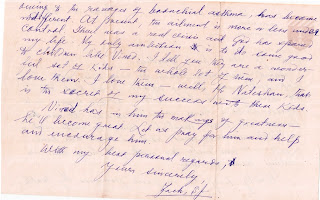 owing to the ravages of bronchial asthma, has become
indifferent. At present, the ailment is more or less under
control. That was a real crisis and God has spared
my life. My only ambition is to do some good
to children like Vinod. I tell you they are a wonder-
ful set of kids — the whole lot of them, and I
love them. I love them — well, Mr Natarshan, that
is the secret of my success with these kids.
Vinod has in him the makings of greatness —
he'll become great. Let us pray for him and help
and encourage him.
With my best personal regards,
Yours sincerely
Jack, S.J.